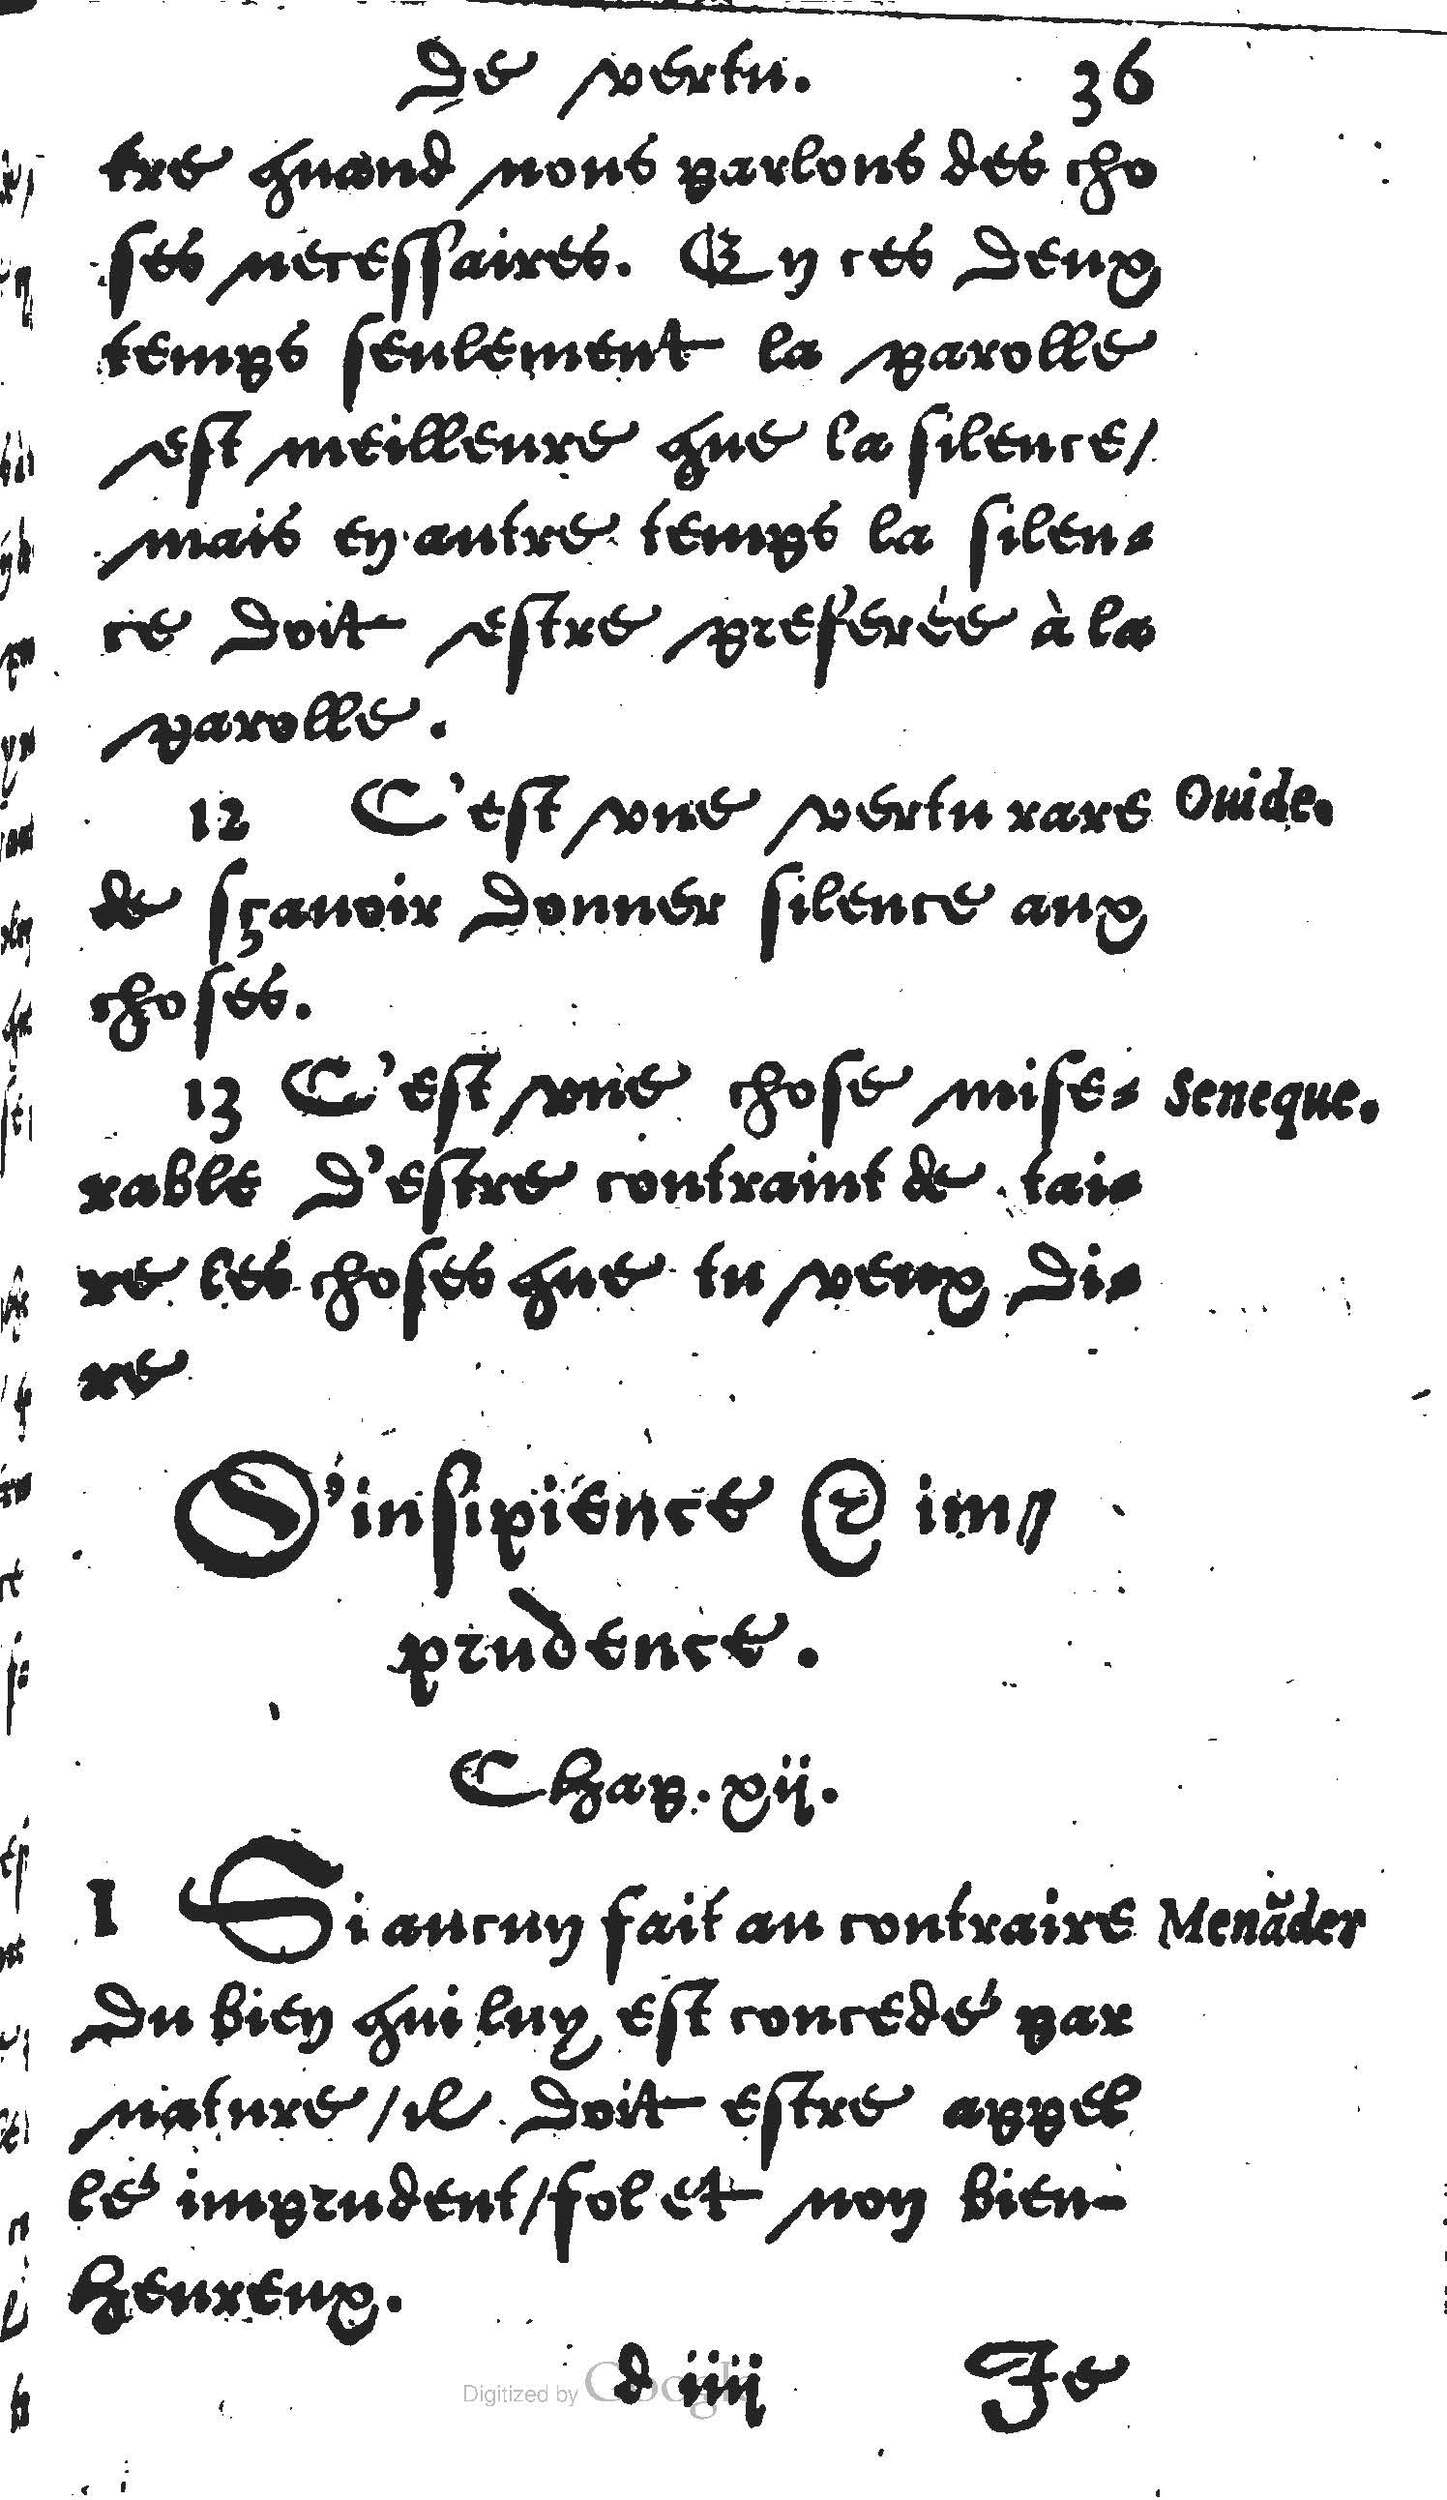 De vertu. 36
tre quand nous parlons des cho
ses necessaires. En ces deux
temps seulement la parolle
est meilleure que la silence/
mais en autre temps la silen-
ce doit estre preferée à la
parolle.
12 C'est vne vertu rare Ouide.
de sçauoir donner silence aux
choses.
13 C'est vne chose mise- Seneque.
rable d'estre contraint de tai-
re les choses que tu veux di-
re
D'insipience & im-
prudence.
Chap. xij.
1 Si aucun fait au contraire Menãder
du bien qui luy est concedé par
nature/il doit estre appel
lé imprudent/fol et non bien-
heureux.
d iiij Je
Digitized by Google